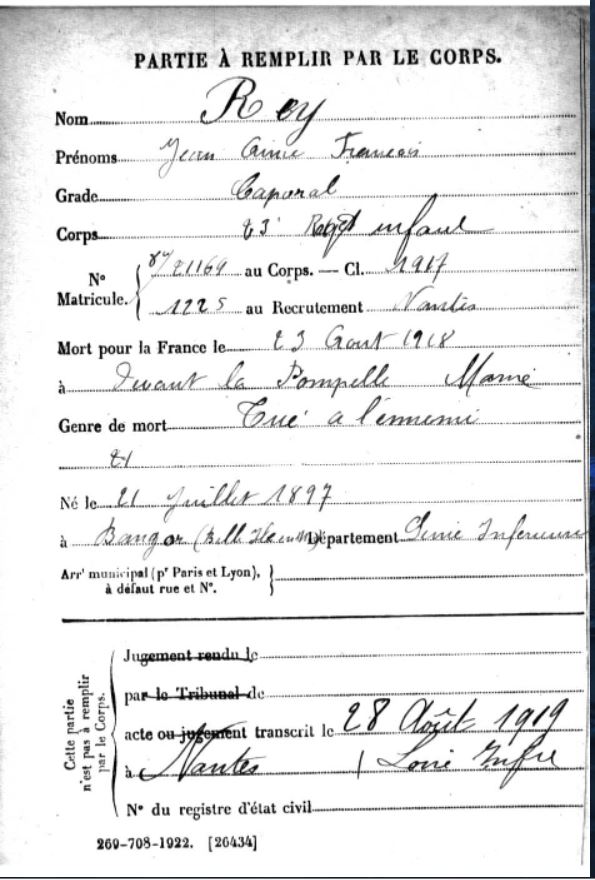 PARTIE À REMPLIR PAR LE CORPS.
Nom Roy
Prénoms Jean Aimé Francois
Grade Caporal
Corps 23e Regt infant
N° Matricule. 21169 au Corps. — Cl. 1917
1225 au Recrutement Nantes
Mort pour la France le 23 Aout 1918
à Devant la Pompelle Marne
Genre de mort Tué à l'ennemi
21
Né le 21 Juillet 1897
à Bangor (Belle Ile en M) Département Loire Inferieure
Arrt municipal (pr Paris et Lyon), à défaut rue et N°.
Cette partie n'est pas à remplir par le Corps.
Jugement rendu le
par le Tribunal de
acte ou jugement transcrit le 28 Août 1919
à Nantes / Loire Infre
N° du registre d'état civil
269-708-1922. [26434]